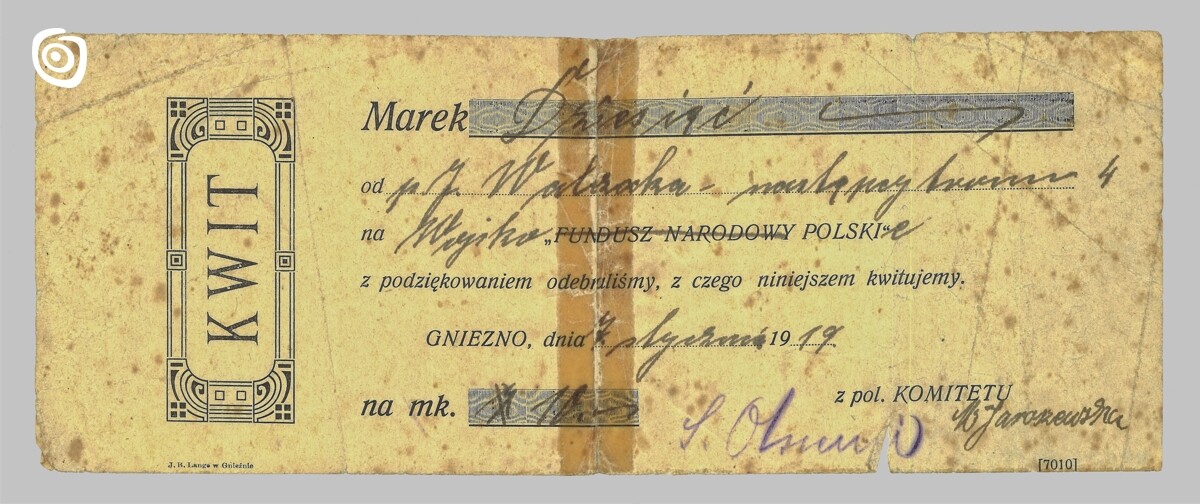 KWIT
Marek Dziesięć
od p J. Walczaka – następcy tronu 4
na Wojsko „FUNDUSZ NARODOWY POLSKI“e
z podziękowaniem odebraliśmy, z czego niniejszem kwitujemy.
GNIEZNO, dnia 7 stycznia 1919
na mk. 10.–
z pol. KOMITETU
M Jaroszewska
J. B. Langa w Gnieźnie
[7010]